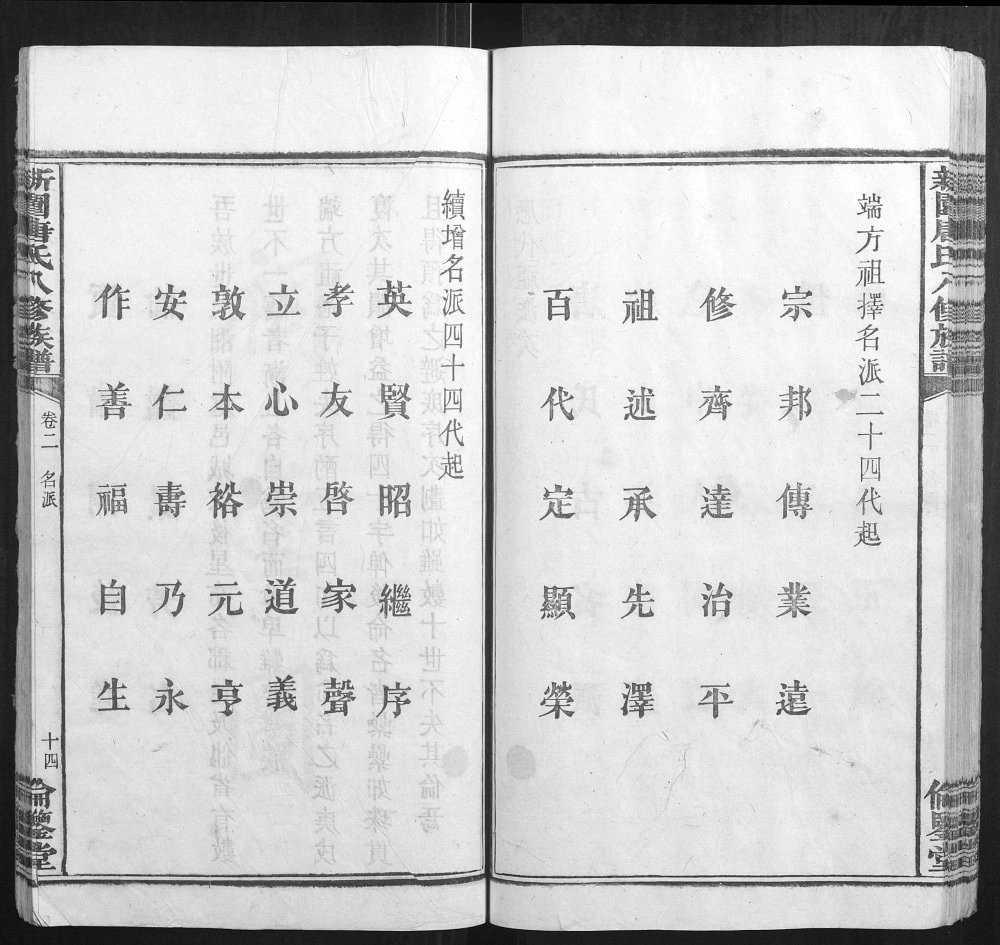 端方祖擇名派二十四代起
宗邦傳業遠
修齊達治平
祖述承先澤
百代定顯榮
續增名派四十四代起
英賢昭繼序
孝友啓家聲
立心崇道義
敦本裕元亨
安仁乃壽永
作善福自生
唐氏八修族譜
卷二 名派
十四
倫鑒堂